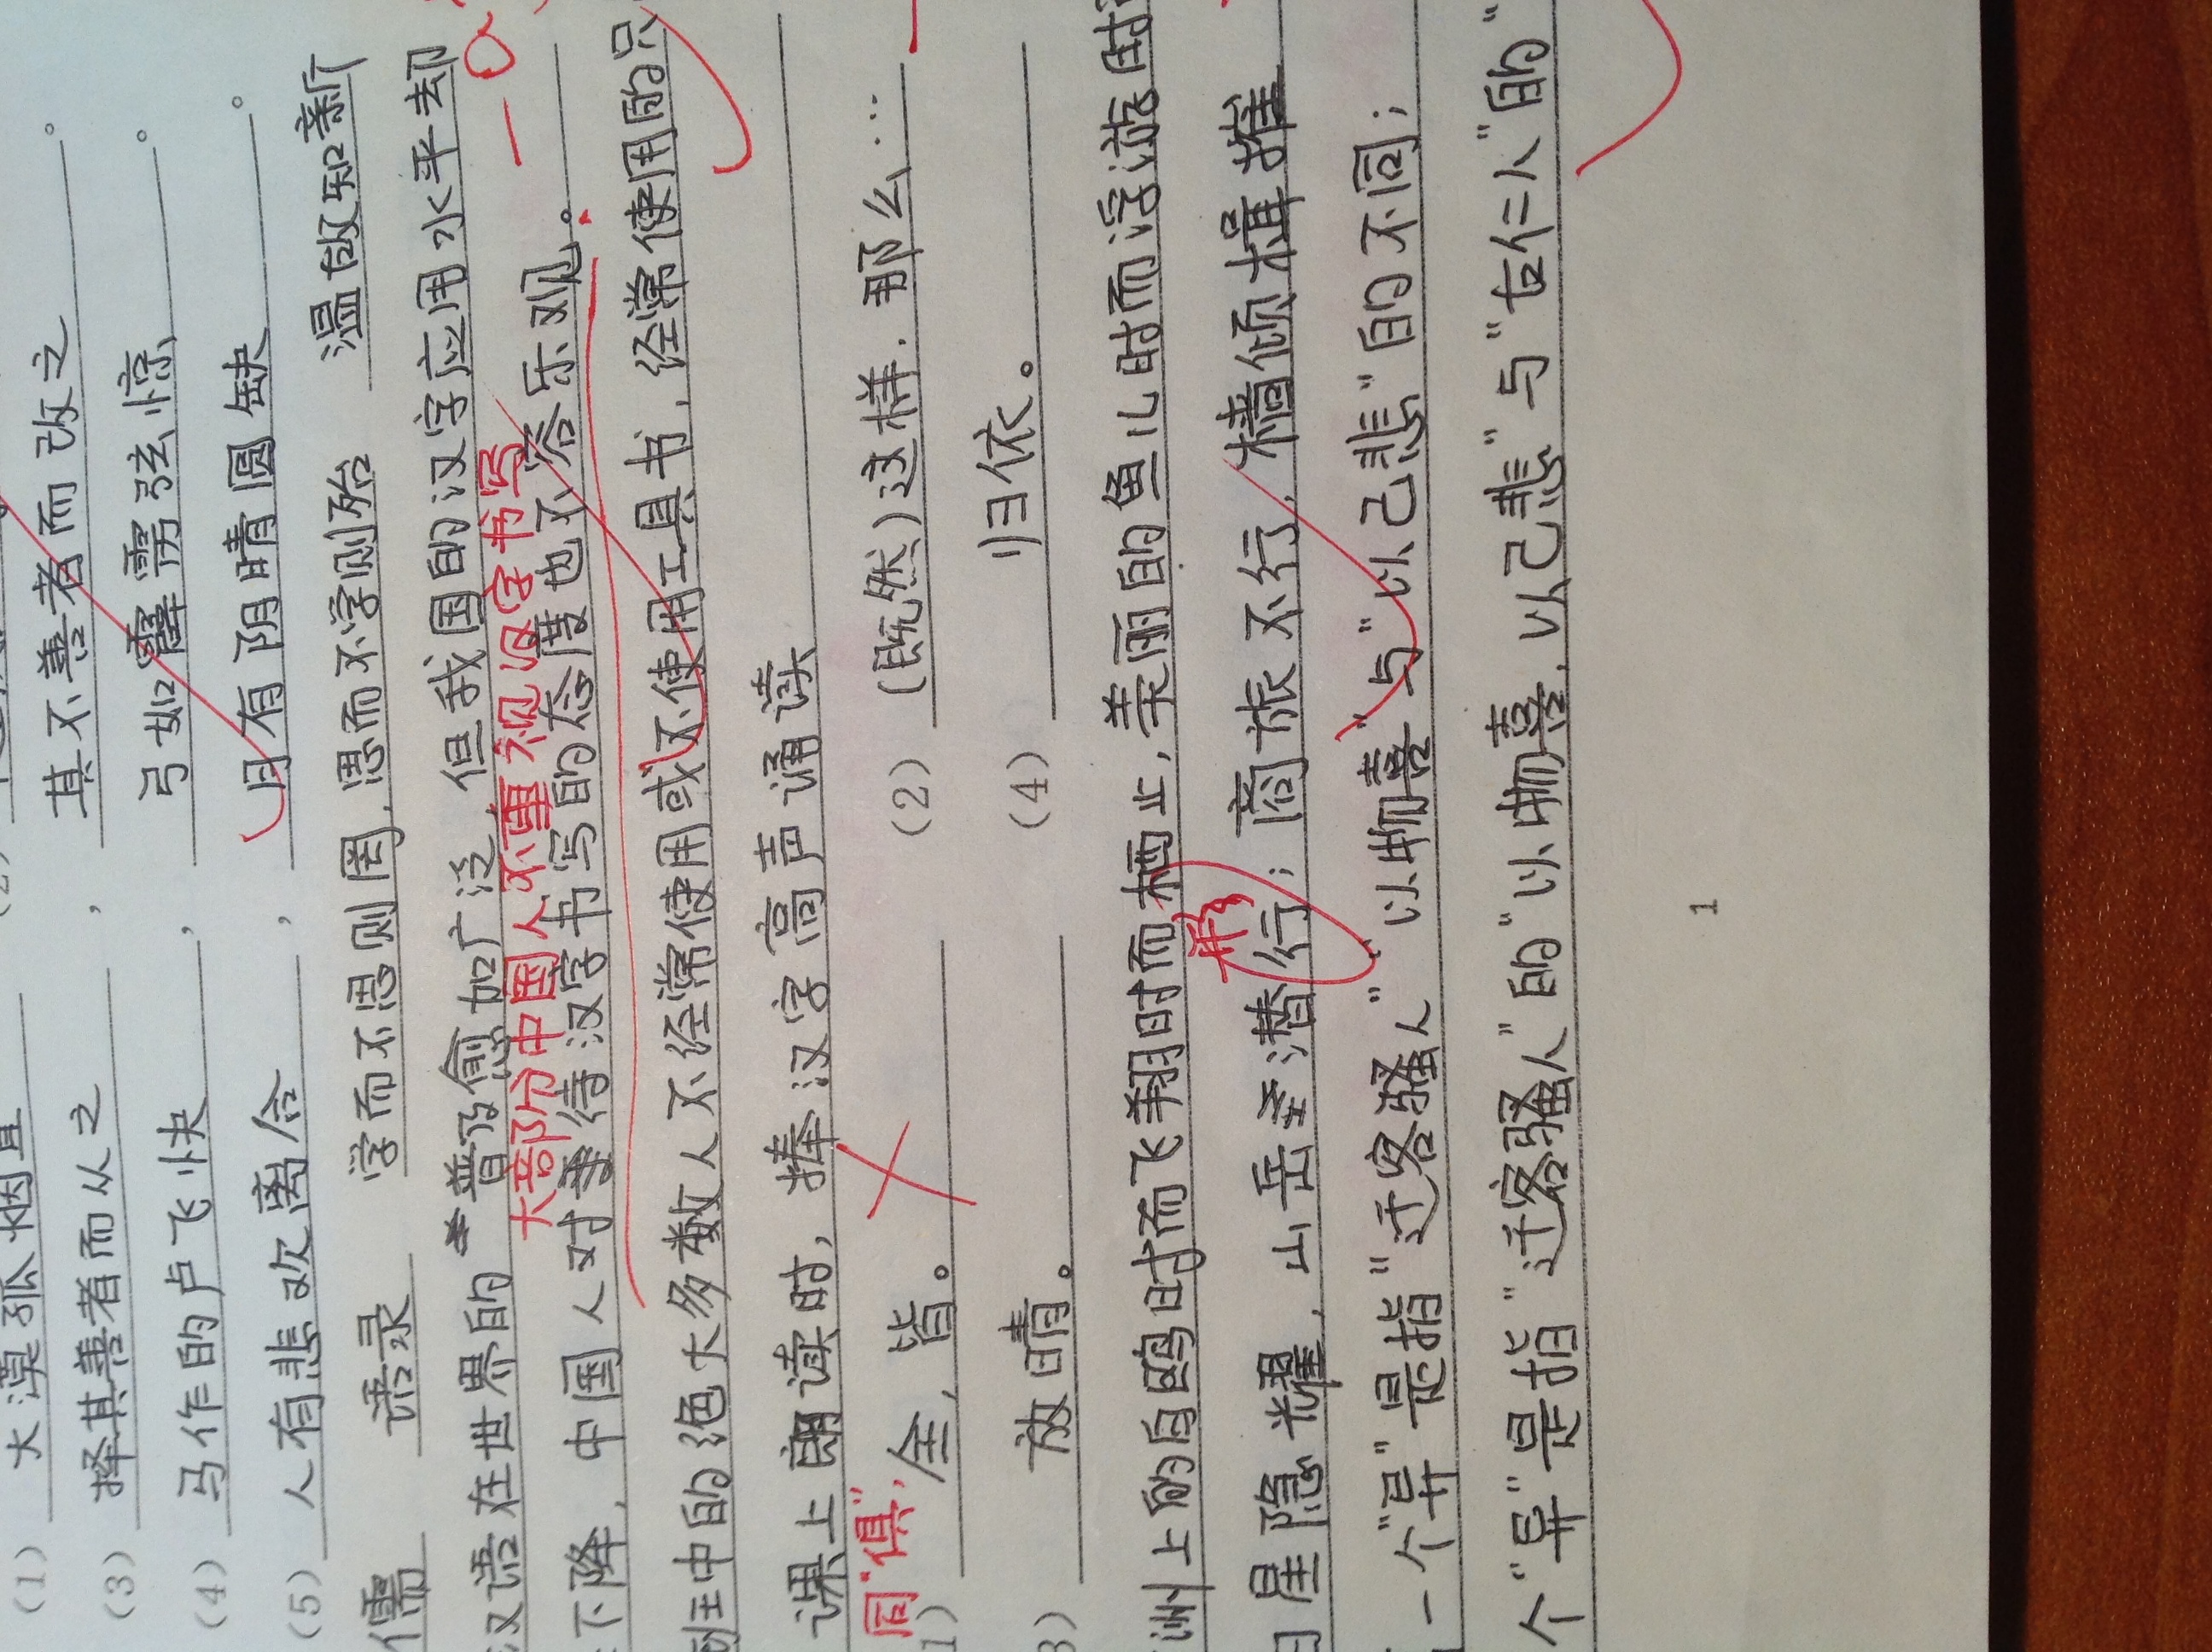 (1) 大漠孤烟直 (2)
(3) 择其善者而从之 , 其不善者而改之 。
(4) 马作的卢飞快 , 弓如霹雳弦惊 。
(5) 人有悲欢离合 , 月有阴晴圆缺 。
儒 语录 学而不思则罔,思而不学则殆 温故知新
汉语在世界的普及愈加广泛,但我国的汉字应用水平却
大部分中国人不重视汉字书写
下降,中国人对待汉字书写的态度也不容乐观。
班中的绝大多数人不经常使用或不使用工具书,经常使用的只
课上朗读时,捧汉字高声诵读
同“俱”,
1) 全,皆。 (2) (既然)这样.那么…
3) 放晴。 (4) 归依。
洲上的白鸥时而飞翔时而栖止,美丽的鱼儿时而浮游时
形
日星隐耀,山岳潜行;商旅不行,樯倾楫摧
一个“异”是指“迁客骚人”“以物喜”与“以己悲”的不同;
个“异”是指“迁客骚人”的“以物喜,以己悲”与“古仁人”的“
1